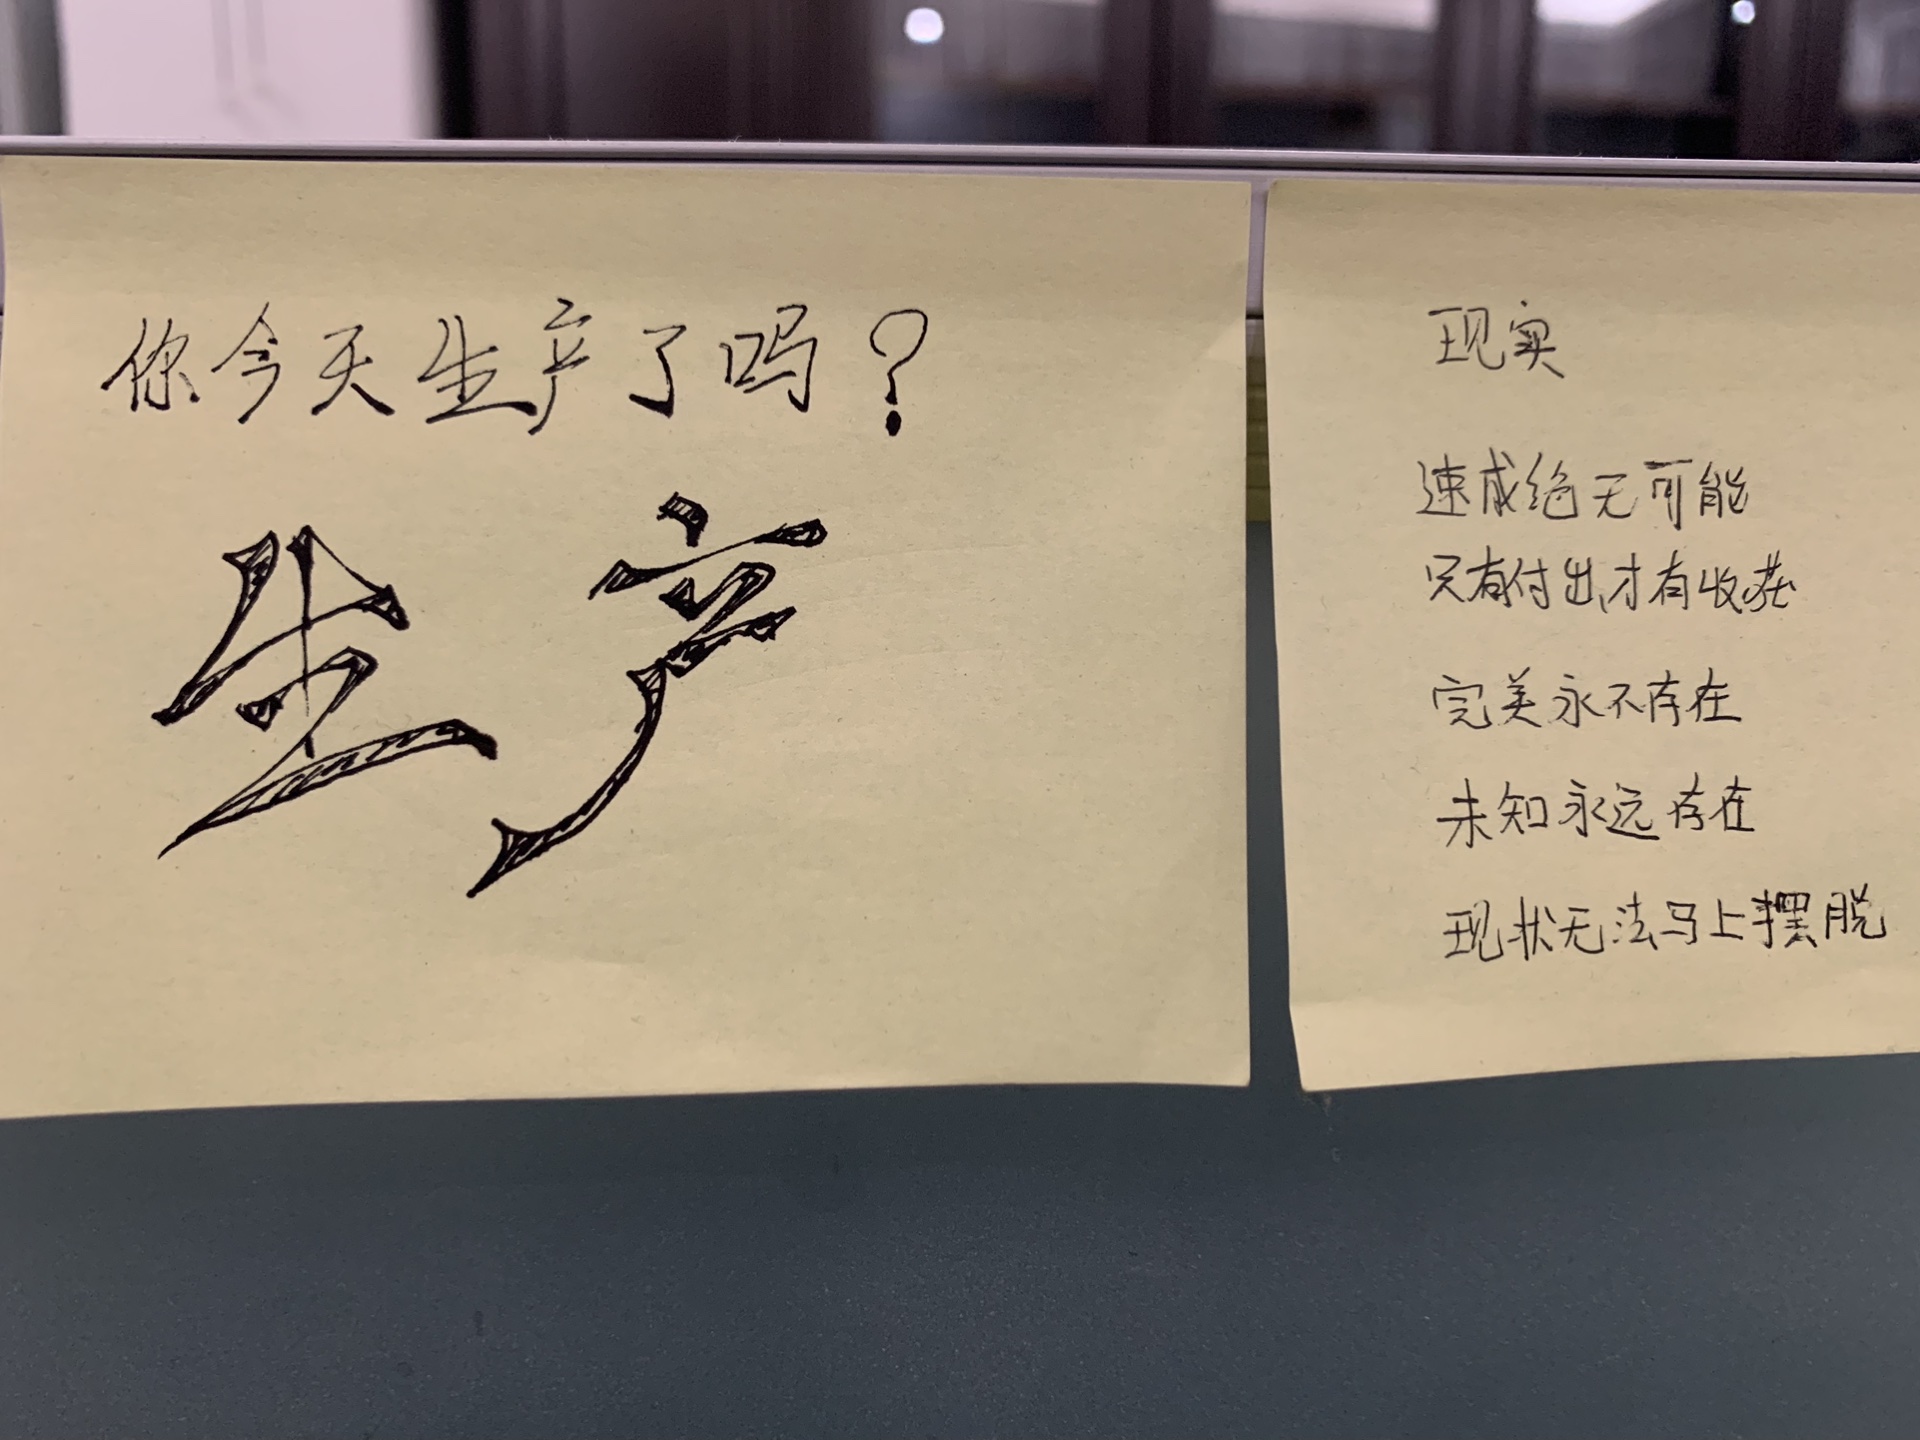 你今天生产了吗?
生产
现实
速成绝无可能
只有付出,才有收获
完美永不存在
未知永远存在
现状无法马上摆脱